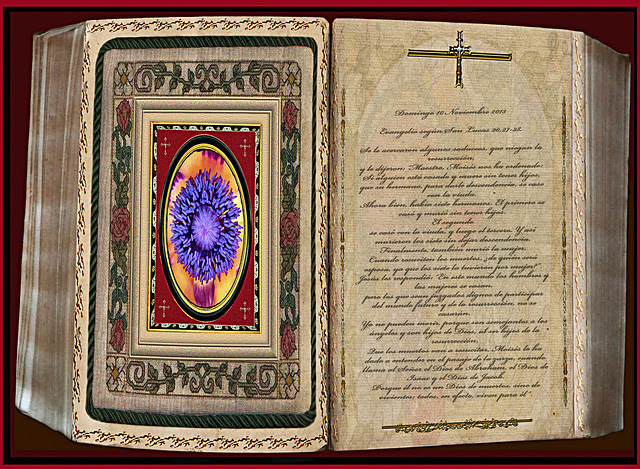 Domingo 10 Noviembre 2013
Evangelio según San Lucas 20,27-38.
Se le acercaron algunos saduceos, que niegan la
resurrección,
y le dijeron: "Maestro, Moisés nos ha ordenado:
Si alguien está casado y muere sin tener hijos,
que su hermano, para darle descendencia, se case
con la viuda.
Ahora bien, había siete hermanos. El primero se
casó y murió sin tener hijos.
El segundo
se casó con la viuda, y luego el tercero. Y así
murieron los siete sin dejar descendencia.
Finalmente, también murió la mujer.
Cuando resuciten los muertos, ¿de quién será
esposa, ya que los siete la tuvieron por mujer?"
Jesús les respondió: "En este mundo los hombres y
las mujeres se casan,
pero los que sean juzgados dignos de participar
del mundo futuro y de la resurrección, no se
casarán.
Ya no pueden morir, porque son semejantes a los
ángeles y son hijos de Dios, al ser hijos de la
resurrección.
Que los muertos van a resucitar, Moisés lo ha
dado a entender en el pasaje de la zarza, cuando
llama al Señor el Dios de Abraham, el Dios de
Isaac y el Dios de Jacob.
Porque él no es un Dios de muertos, sino de
vivientes; todos, en efecto, viven para él".